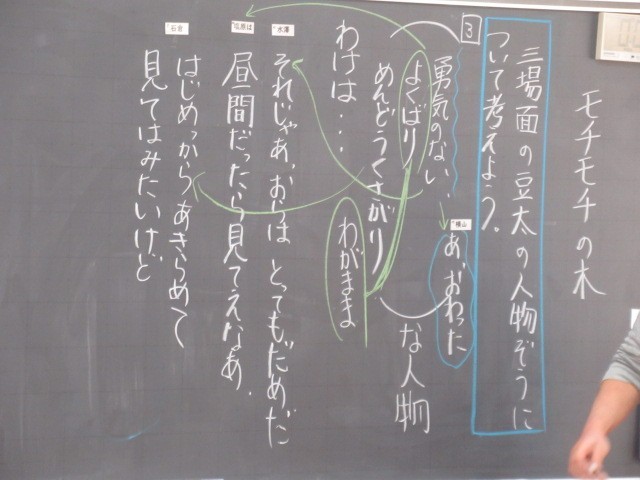 モチモチの木
三場面の豆太の人物ぞうに
ついて考えよう。
3
横山
あ、おわった
勇気のない
よくばり
めんどうくさがり
な人物
わがまま
わけは・・・
水澤
それじゃぁ、おらは とってもだめだ
昼間だったら見てえなぁ、
石舎
はじめっからあきらめて
見てはみたいけど